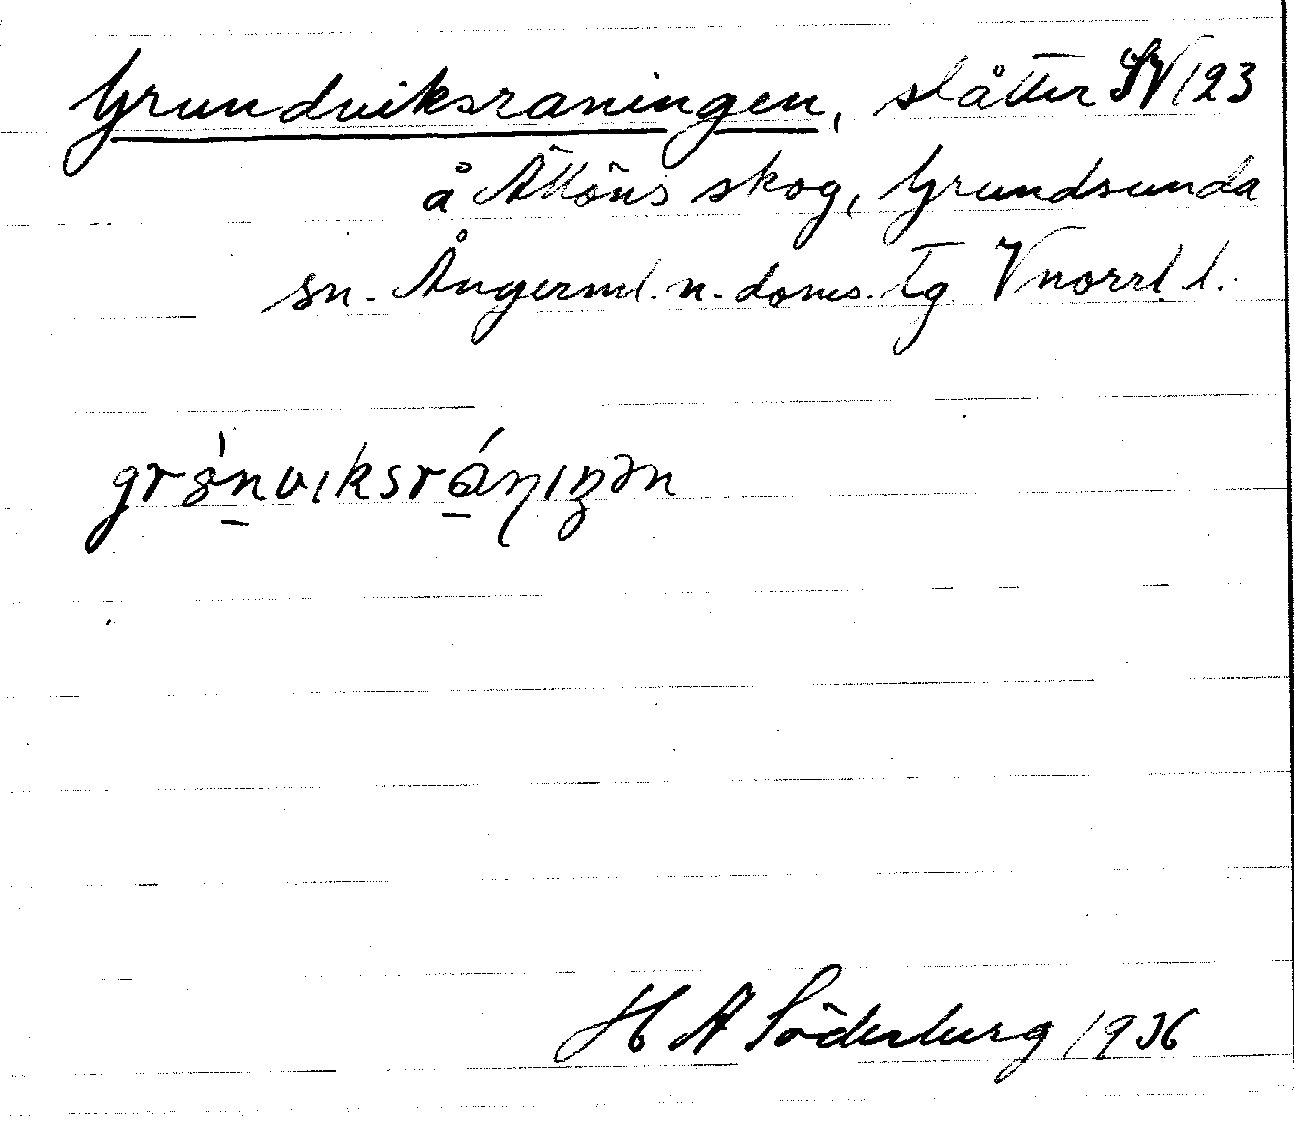 Grundviksraningen, slåtter SV 123
å Ättöns skog, Grundsunda
sn. Ångerml. n. doms. tg Vnorrl. l.
H A Söderberg 1936